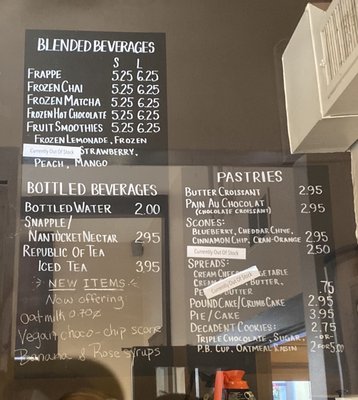 BLENDED BEVERAGES
S L
FRAPPE 5.25 6.25
FROZEN CHAI 5.25 6.25
FROZEN MATCHA 5.25 6.25
FROZEN HOT CHOCOLATE 5.25 6.25
FRUIT SMOOTHIES 5.25 6.25
FROZEN LEMONADE, FROZEN
Currently Out Of Stock STRAWBERRY,
PEACH, MANGO
BOTTLED BEVERAGES
BOTTLED WATER 2.00
SNAPPLE/
NANTUCKET NECTAR 2.95
REPUBLIC OF TEA
ICED TEA 3.95
NEW ITEMS
Now offering
Oatmilk 0.70¢
Vegan choco-chip scone
Banana & Rose syrups
PASTRIES
BUTTER CROISSANT 2.95
PAIN AU CHOCOLAT 2.95
(CHOCOLATE CROISSANT)
SCONES:
BLUEBERRY, CHEDDAR CHIVE,
CINNAMON CHIP, CRAN-ORANGE 2.95
Currently Out Of Stock 2.50
SPREADS:
CREAM CHEESE
BUTTER,
BUTTER .75
Currently Out Of Stock
POUND CAKE/CRUMB CAKE 2.95
PIE/CAKE 3.95
DECADENT COOKIES: 2.75
TRIPLE CHOCOLATE, SUGAR, -OR-
P.B. CUP, OATMEAL RAISIN 2 FOR 5.00